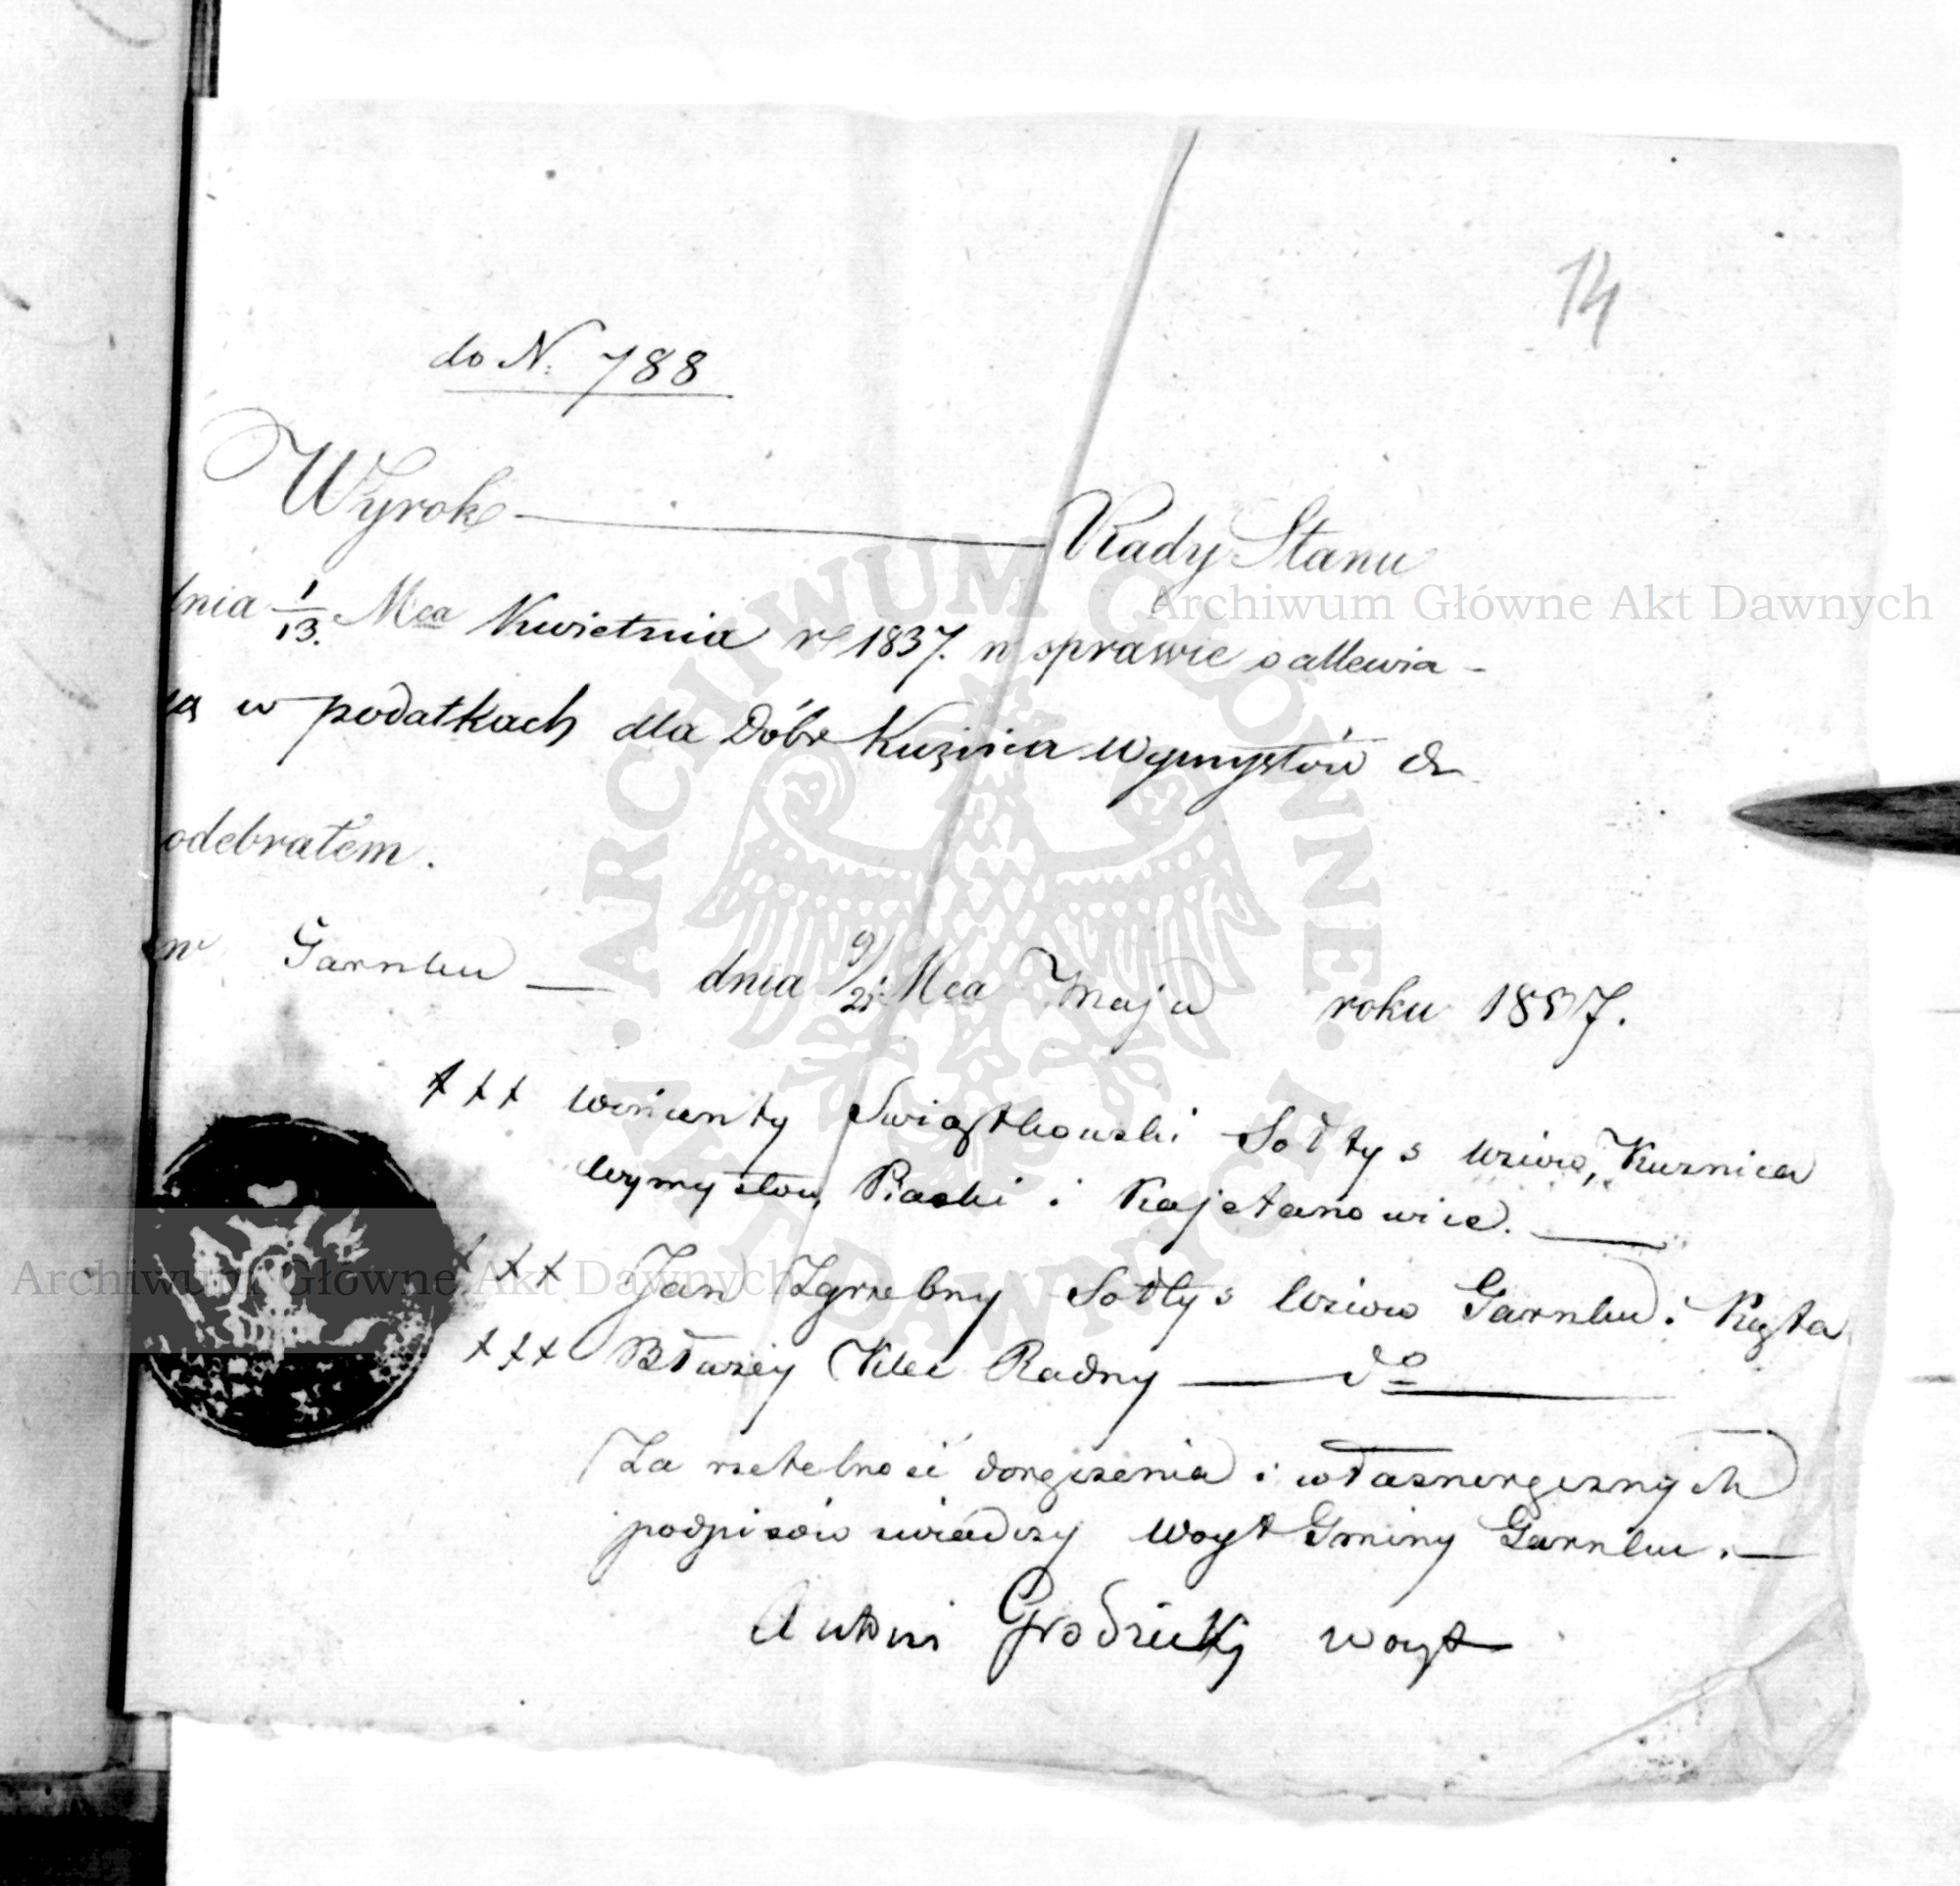 14
do N. 788
Wyrok — Rady Stanu
dnia 1/13. Mca Kwietnia r. 1837. w sprawie o allewia-
w podatkach dla Dóbr Kuźnica Wymysłów &
odebrałem.
w Garnku — dnia 9/21. Mca Maja roku 1837.
+++ Swiątkowski Sołtys wsiow, Kuznica
Wymysłow, Piaski i Kajetanowice. —
+++ Jan Zgrzebny Sołtys wsiow Garnku i
+++ Błazey Klec Radny — do —
Za rzetelność doręczenia i własnoręcznych
podpisów swiadczy Woyt Gminy Garnku. —
Antoni Grodzicky woyt
ARCHIWUM GŁÓWNE AKT DAWNYCH
Archiwum Główne Akt Dawnych
Archiwum Główne Akt Dawnych